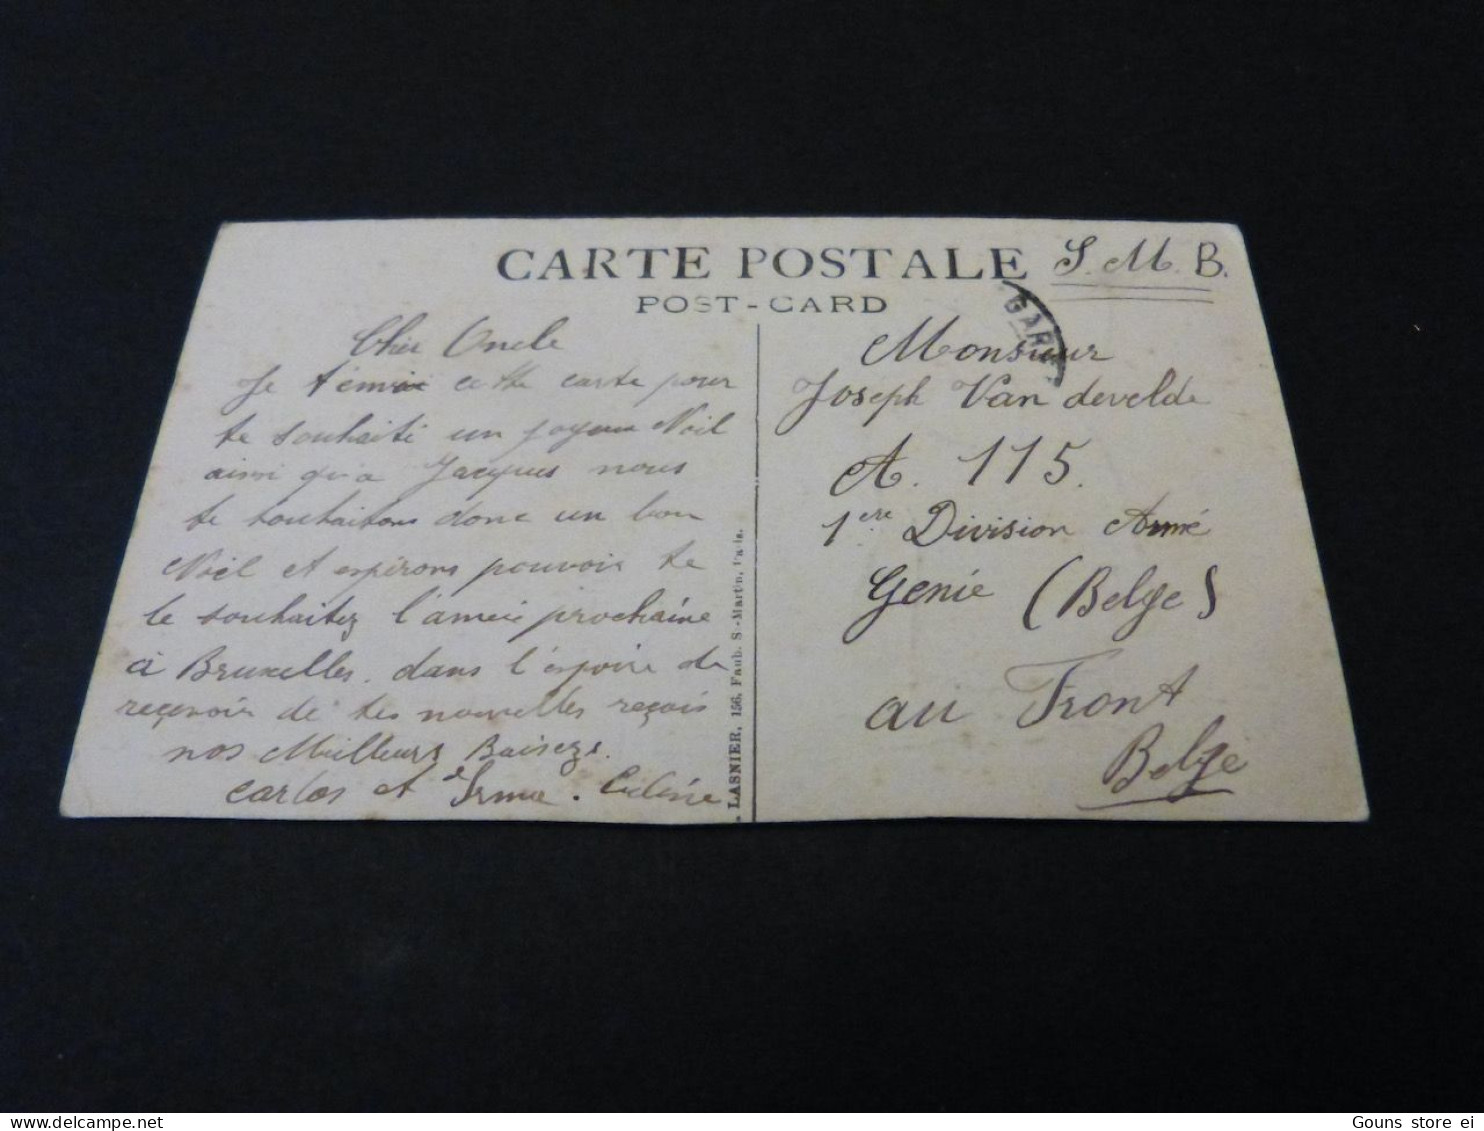 CARTE POSTALE
POST-CARD
S. M. B.
GARE
Cher Oncle
Je t'émrie cette carte pour
te souhaité un joyeux Noël
ainsi qu'a Jacques nous
te souhaitons donc un bon
Noël et espérons pouvoir te
le souhaitez l'année prochaine
à Bruxelles. dans l'espoire de
reçevoir de tes nouvelles reçois
nos Meilleurs Baisezs.
Carlos et Irma.
LASNIER, 156, Faub. S-Martin, Paris.
Monsieur
Joseph Van develde
A. 115.
1ere Division Armé
Genie (Belge)
au Front
Belge
Gouns store ei